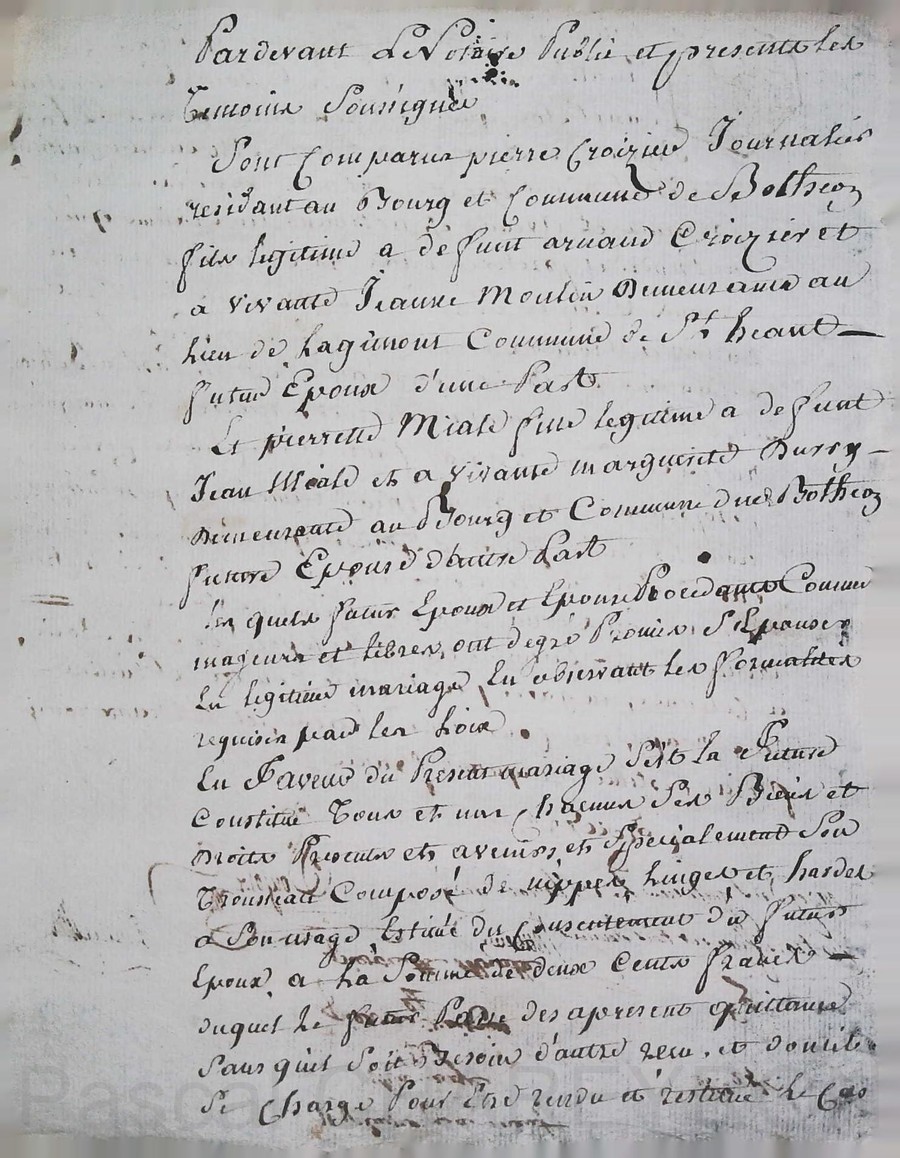 Pardevant Le Notaire Public et presents les
Temoins Soussignés
Sont Comparus pierre Croizier Journalier
residant au Bourg et Commune de Botheon
fils legitime a defunt arnaud Croizier et
a vivante Jeanne Moulin Demeurante au
lieu de Lagimont Commune de St heant
futur Epoux d'une Part
Et pierrette Miale fille legitime a defunt
Jean Miale et a vivante marguerite
Demeurante au Bourg et Commune dud Botheon
future Epouse d'autre Part
Les quels futur Epoux et Epouse Procedants Comme
majeurs et libres, ont degré Promis S'Epouser
En legitime mariage En observant les formalités
requises par les Loix
En Faveur du Present mariage S'est la Future
Constitué Tous et uns chacuns Ses Biens et
Droits Presents et avenirs, et Specialement Son
Trousseau Composé de nippes, linges et hardes
a Son usage Estimé du Consentement du futur
Epoux a La Somme de deux Cents francs
duquel le futur Passe des apresent quittance
Sans quil Soit Besoin d'autre recu, et dont il
Se Charge Pour Etre rendu et restitué le Cas
Pascal